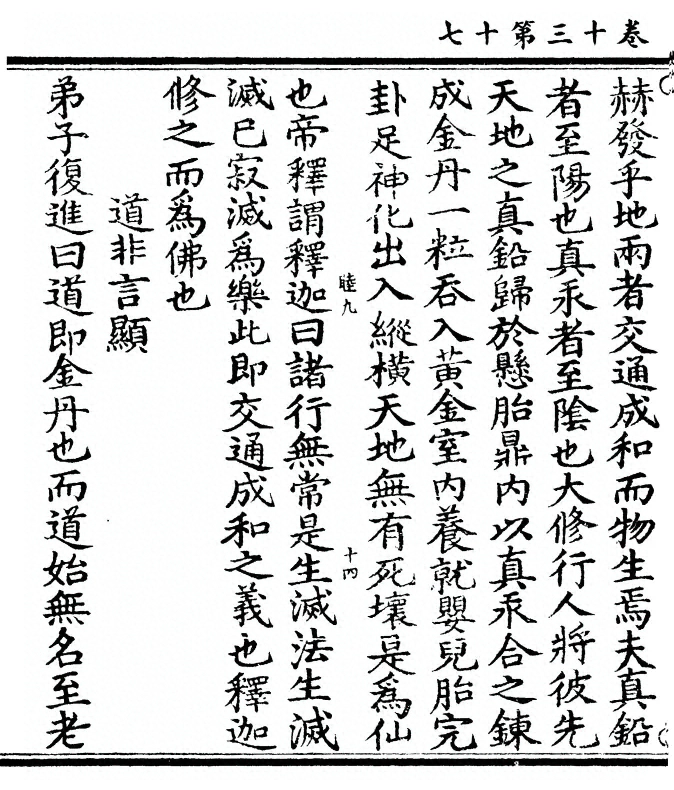 卷十三第十七
赫發乎地兩者交通成和而物生焉夫真鉛
者至陽也真汞者至陰也大修行人將彼先
天地之真鉛歸於懸胎鼎内以真汞合之鍊
成金丹一粒吞入黃金室内養就嬰兒胎完
卦足神化出入縱橫天地無有死壞是爲仙
睦九
十四
也帝釋謂釋迦曰諸行無常是生滅法生滅
滅已寂滅爲樂此即交通成和之義也釋迦
修之而爲佛也
道非言顯
弟子復進曰道即金丹也而道始無名至老